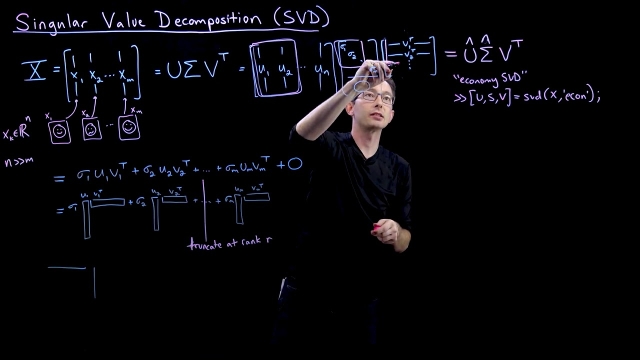 Singular Value Decomposition (SVD)
X = [x₁ x₂ ... xₘ] = U Σ Vᵀ = [u₁ u₂ ... uₙ] [σ₁ σ₂ [v₁ᵀ v₂ᵀ ⋮] = Û Σ̂ Vᵀ
"economy SVD"
>> [U,S,V] = svd(X,'econ');
x₁ x₂ ...
xₖ ∈ ℝⁿ
n >> m
= σ₁ u₁ v₁ᵀ + σ₂ u₂ v₂ᵀ + ... + σₘ uₘ vₘᵀ + 0
u₁ v₁ᵀ u₂ v₂ᵀ
= σ₁ + σ₂ + ... + σₘ
truncate at rank r